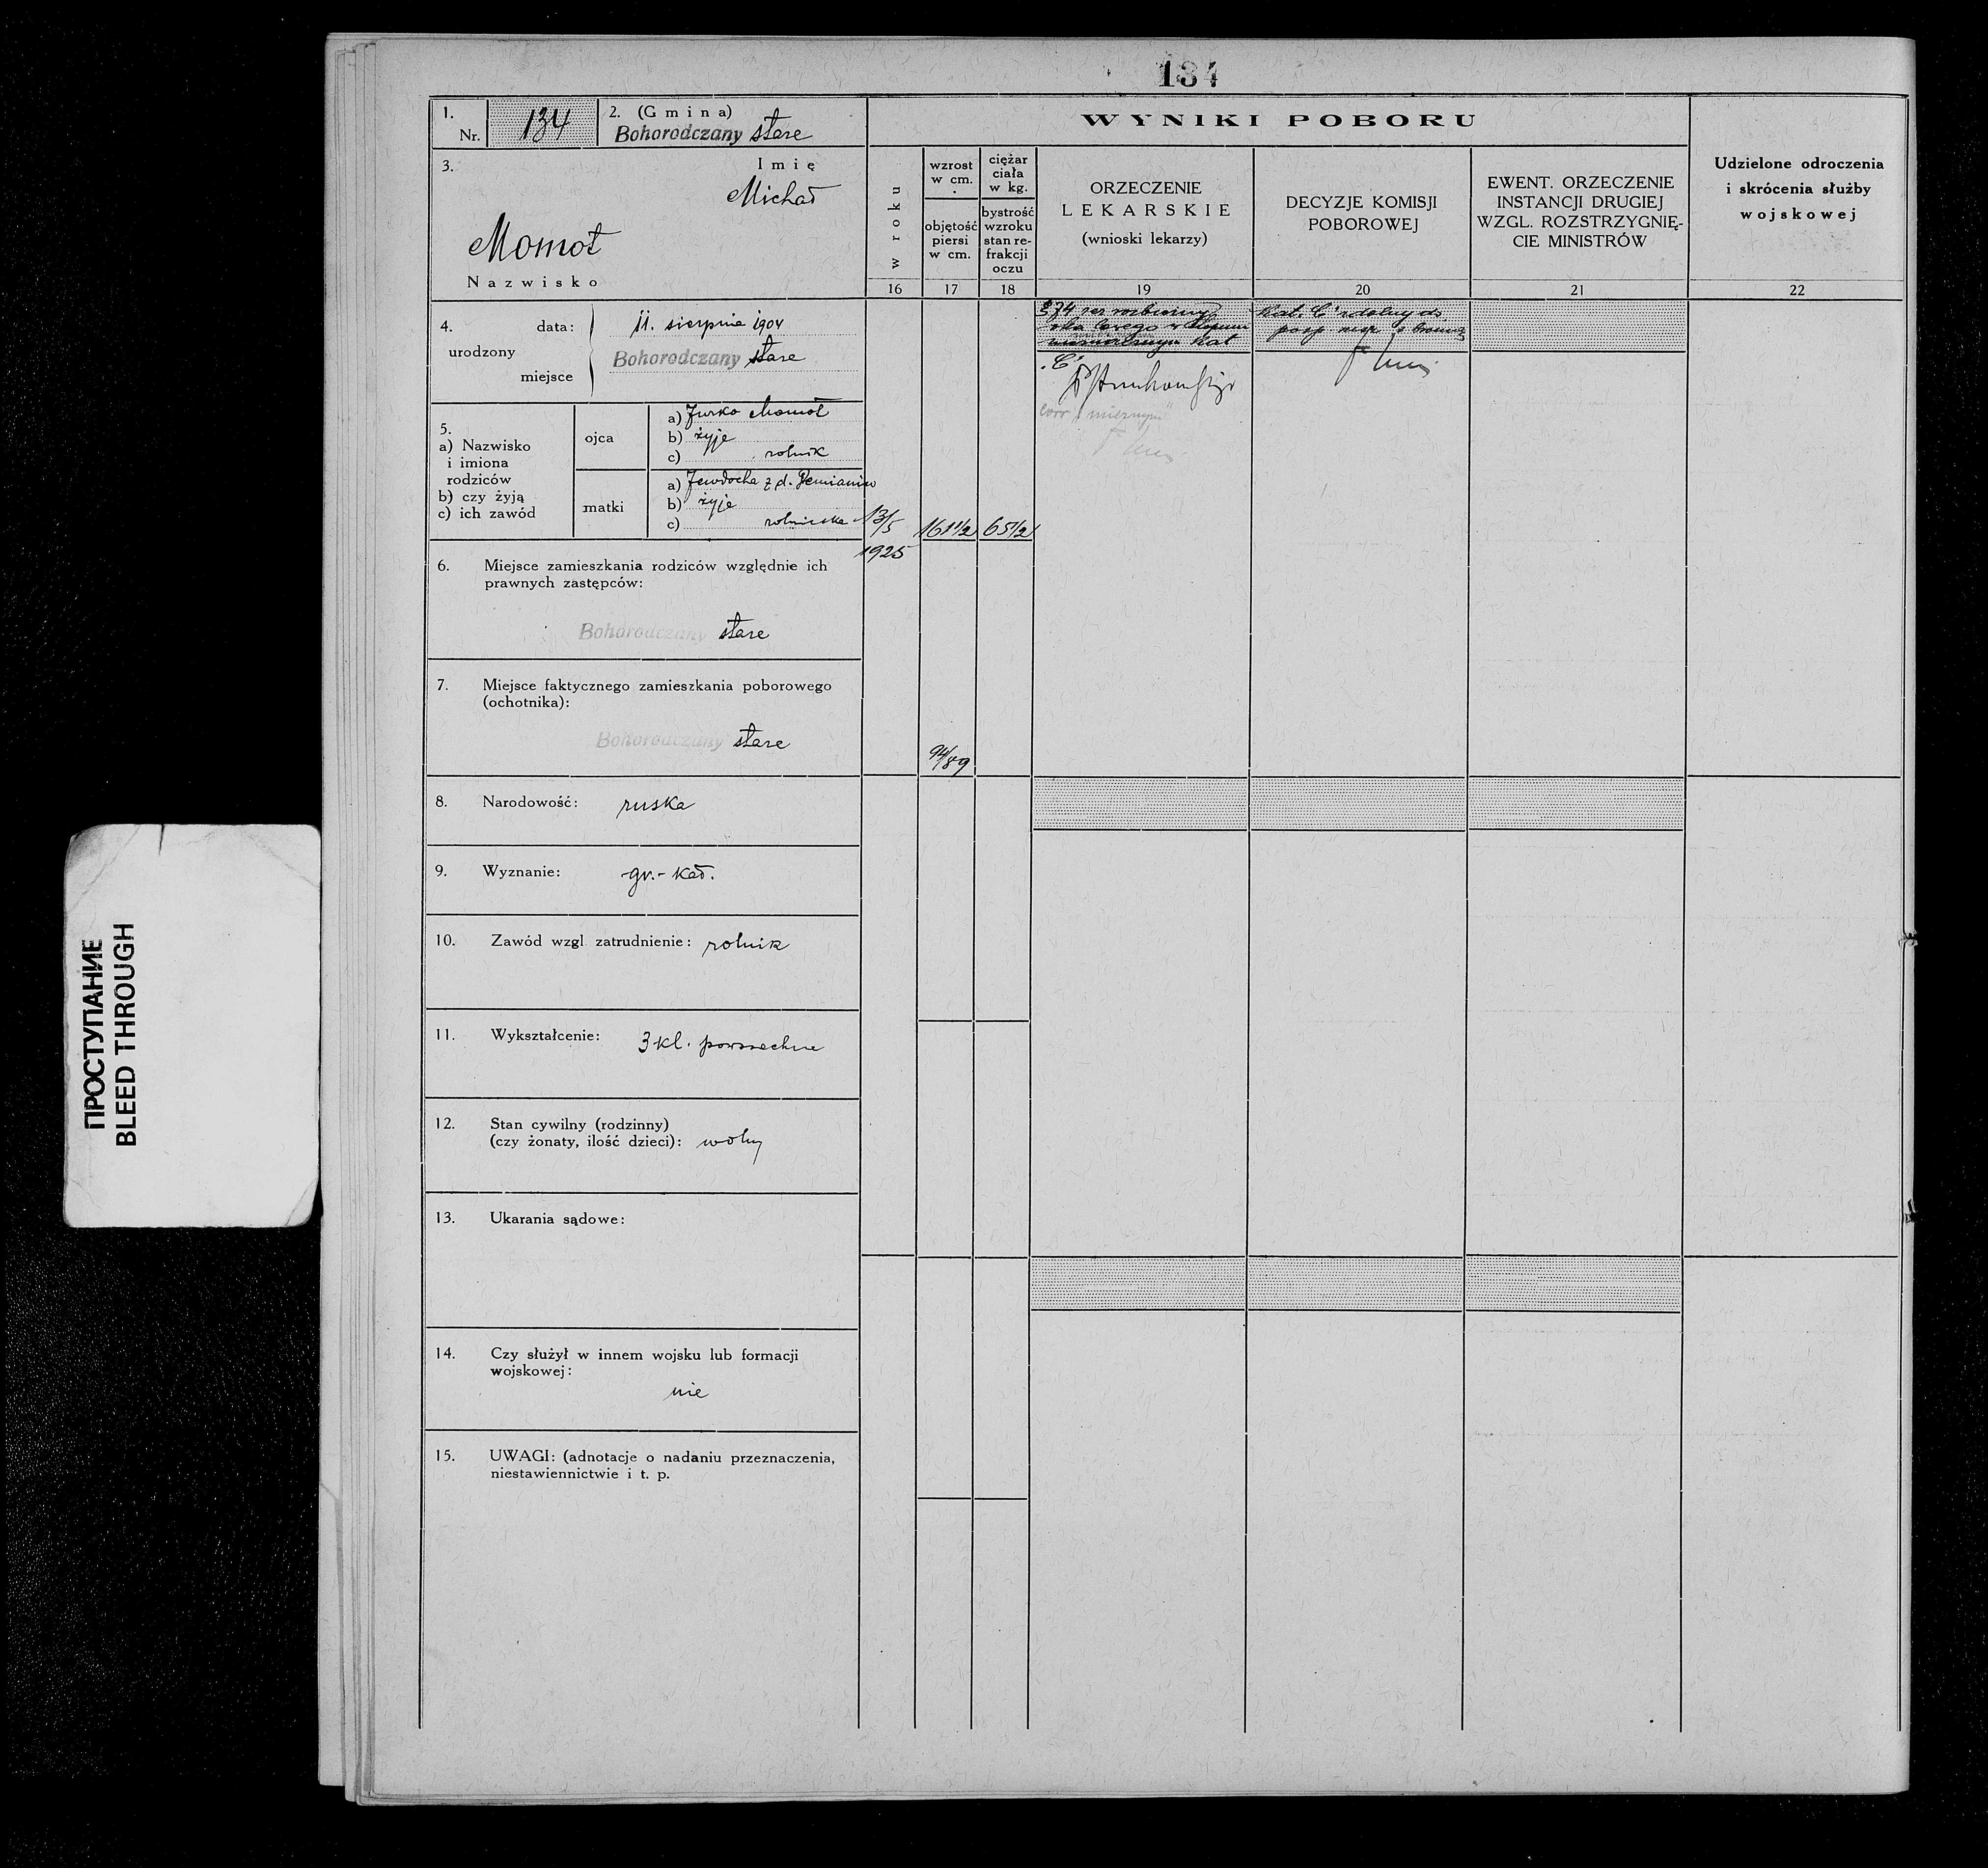 134
1.
Nr. 134
2. (Gmina)
Bohorodczany stare
3.
Imię
Michał
Momot
Nazwisko
4.
urodzony
data: 11. sierpnia 1904
miejsce Bohorodczany stare
5.
a) Nazwisko
i imiona
rodziców
b) czy żyją
c) ich zawód
ojca
a) Jurko Momot
b) żyje
c) rolnik
matki
a) Jewdocha z d.
b) żyje
c) rolniczka
6. Miejsce zamieszkania rodziców względnie ich
prawnych zastępców:
Bohorodczany stare
7. Miejsce faktycznego zamieszkania poborowego
(ochotnika):
Bohorodczany stare
8. Narodowość: ruska
9. Wyznanie: gr.-kat.
10. Zawód wzgl. zatrudnienie: rolnik
11. Wykształcenie: 3 kl. powszechne
12. Stan cywilny (rodzinny)
(czy żonaty, ilość dzieci): wolny
13. Ukarania sądowe:
14. Czy służył w innem wojsku lub formacji
wojskowej:
nie
15. UWAGI: (adnotacje o nadaniu przeznaczenia,
niestawiennictwie i t. p.
WYNIKI POBORU
w roku
16
13/5
1925
wzrost
w cm.
objętość
piersi
w cm.
17
161 1/2
94/89
ciężar
ciała
w kg.
bystrość
wzroku
stan re-
frakcji
oczu
18
65 1/2
ORZECZENIE
LEKARSKIE
(wnioski lekarzy)
19
§ 74
Kat
"C"
DECYZJE KOMISJI
POBOROWEJ
20
Kat. C zdolny do
posp. rusz. z bronią
EWENT. ORZECZENIE
INSTANCJI DRUGIEJ
WZGL. ROZSTRZYGNIĘ-
CIE MINISTRÓW
21
Udzielone odroczenia
i skrócenia służby
wojskowej
22
ПРОСТУПАНИЕ
BLEED THROUGH